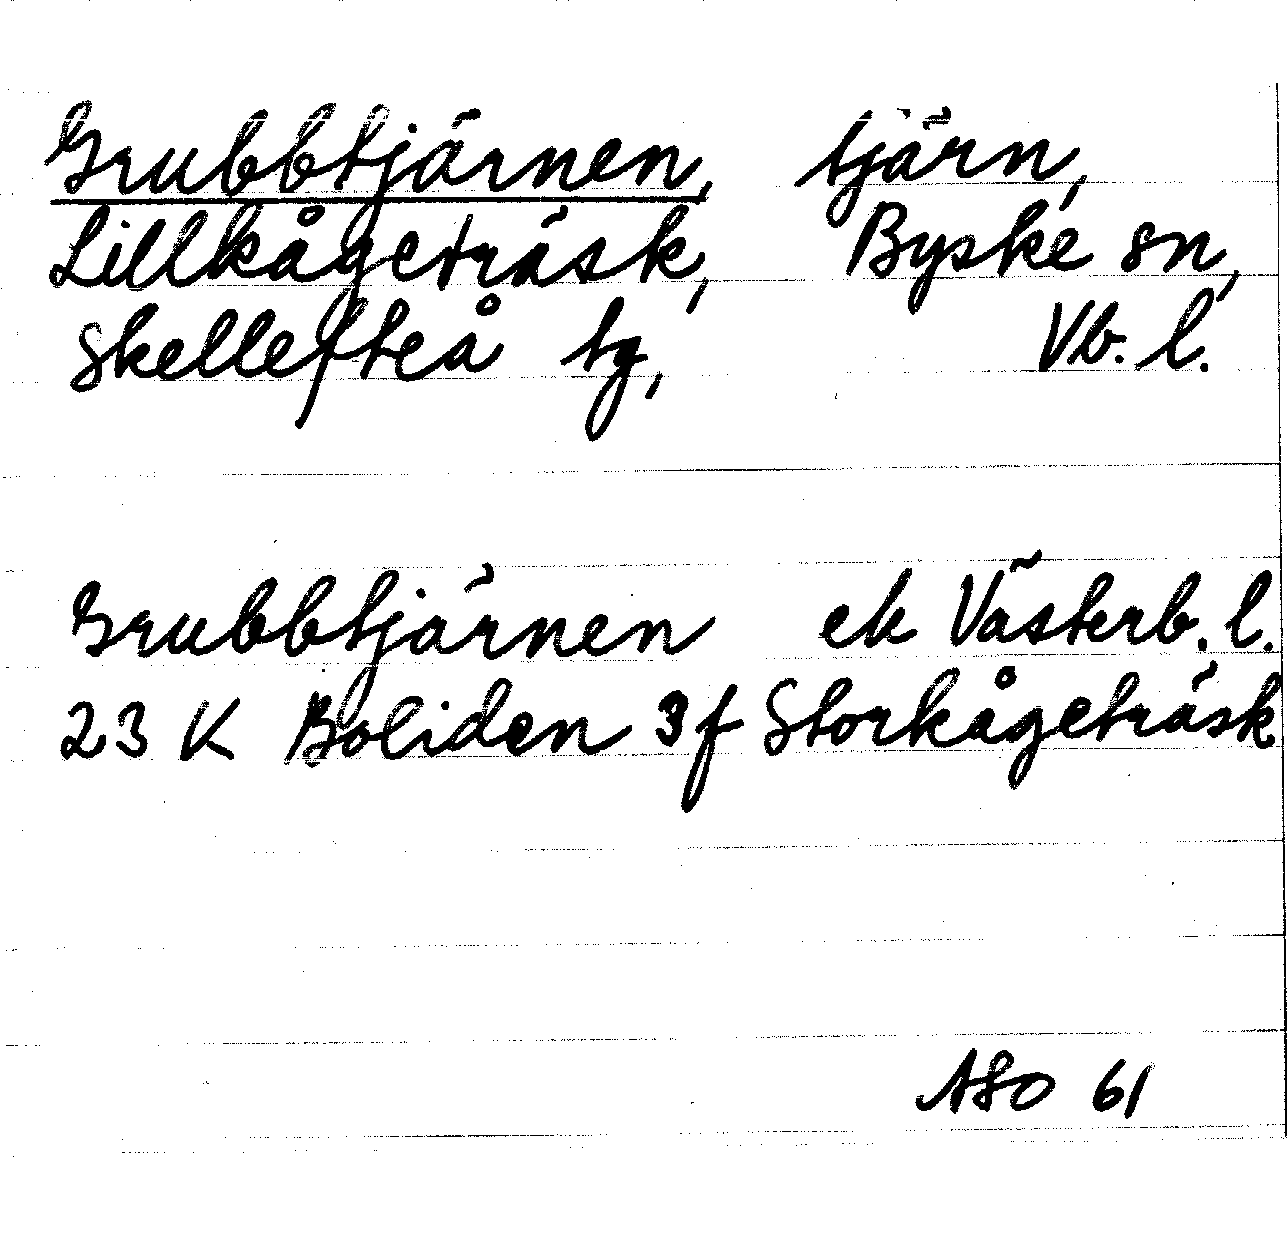 Grubbtjärnen, tjärn,
Lillkågeträsk, Byske sn,
Skellefteå tg, Vb. l.
Grubbtjärnen ek Västerb. l.
23 K Boliden 3f Storkågeträsk
ASO 61